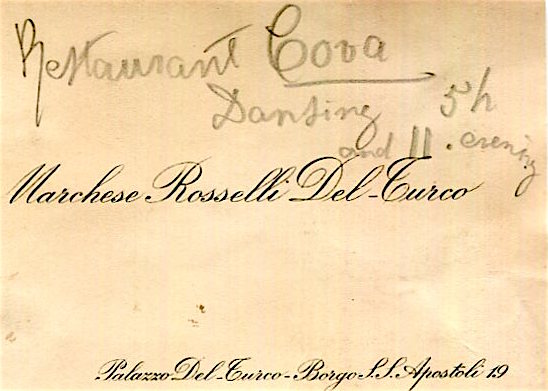 Restaurant Cova
Dansing 5h
and 11. evening
Marchese Rosselli Del-Turco
Palazzo Del-Turco-Borgo S.S. Apostoli 19